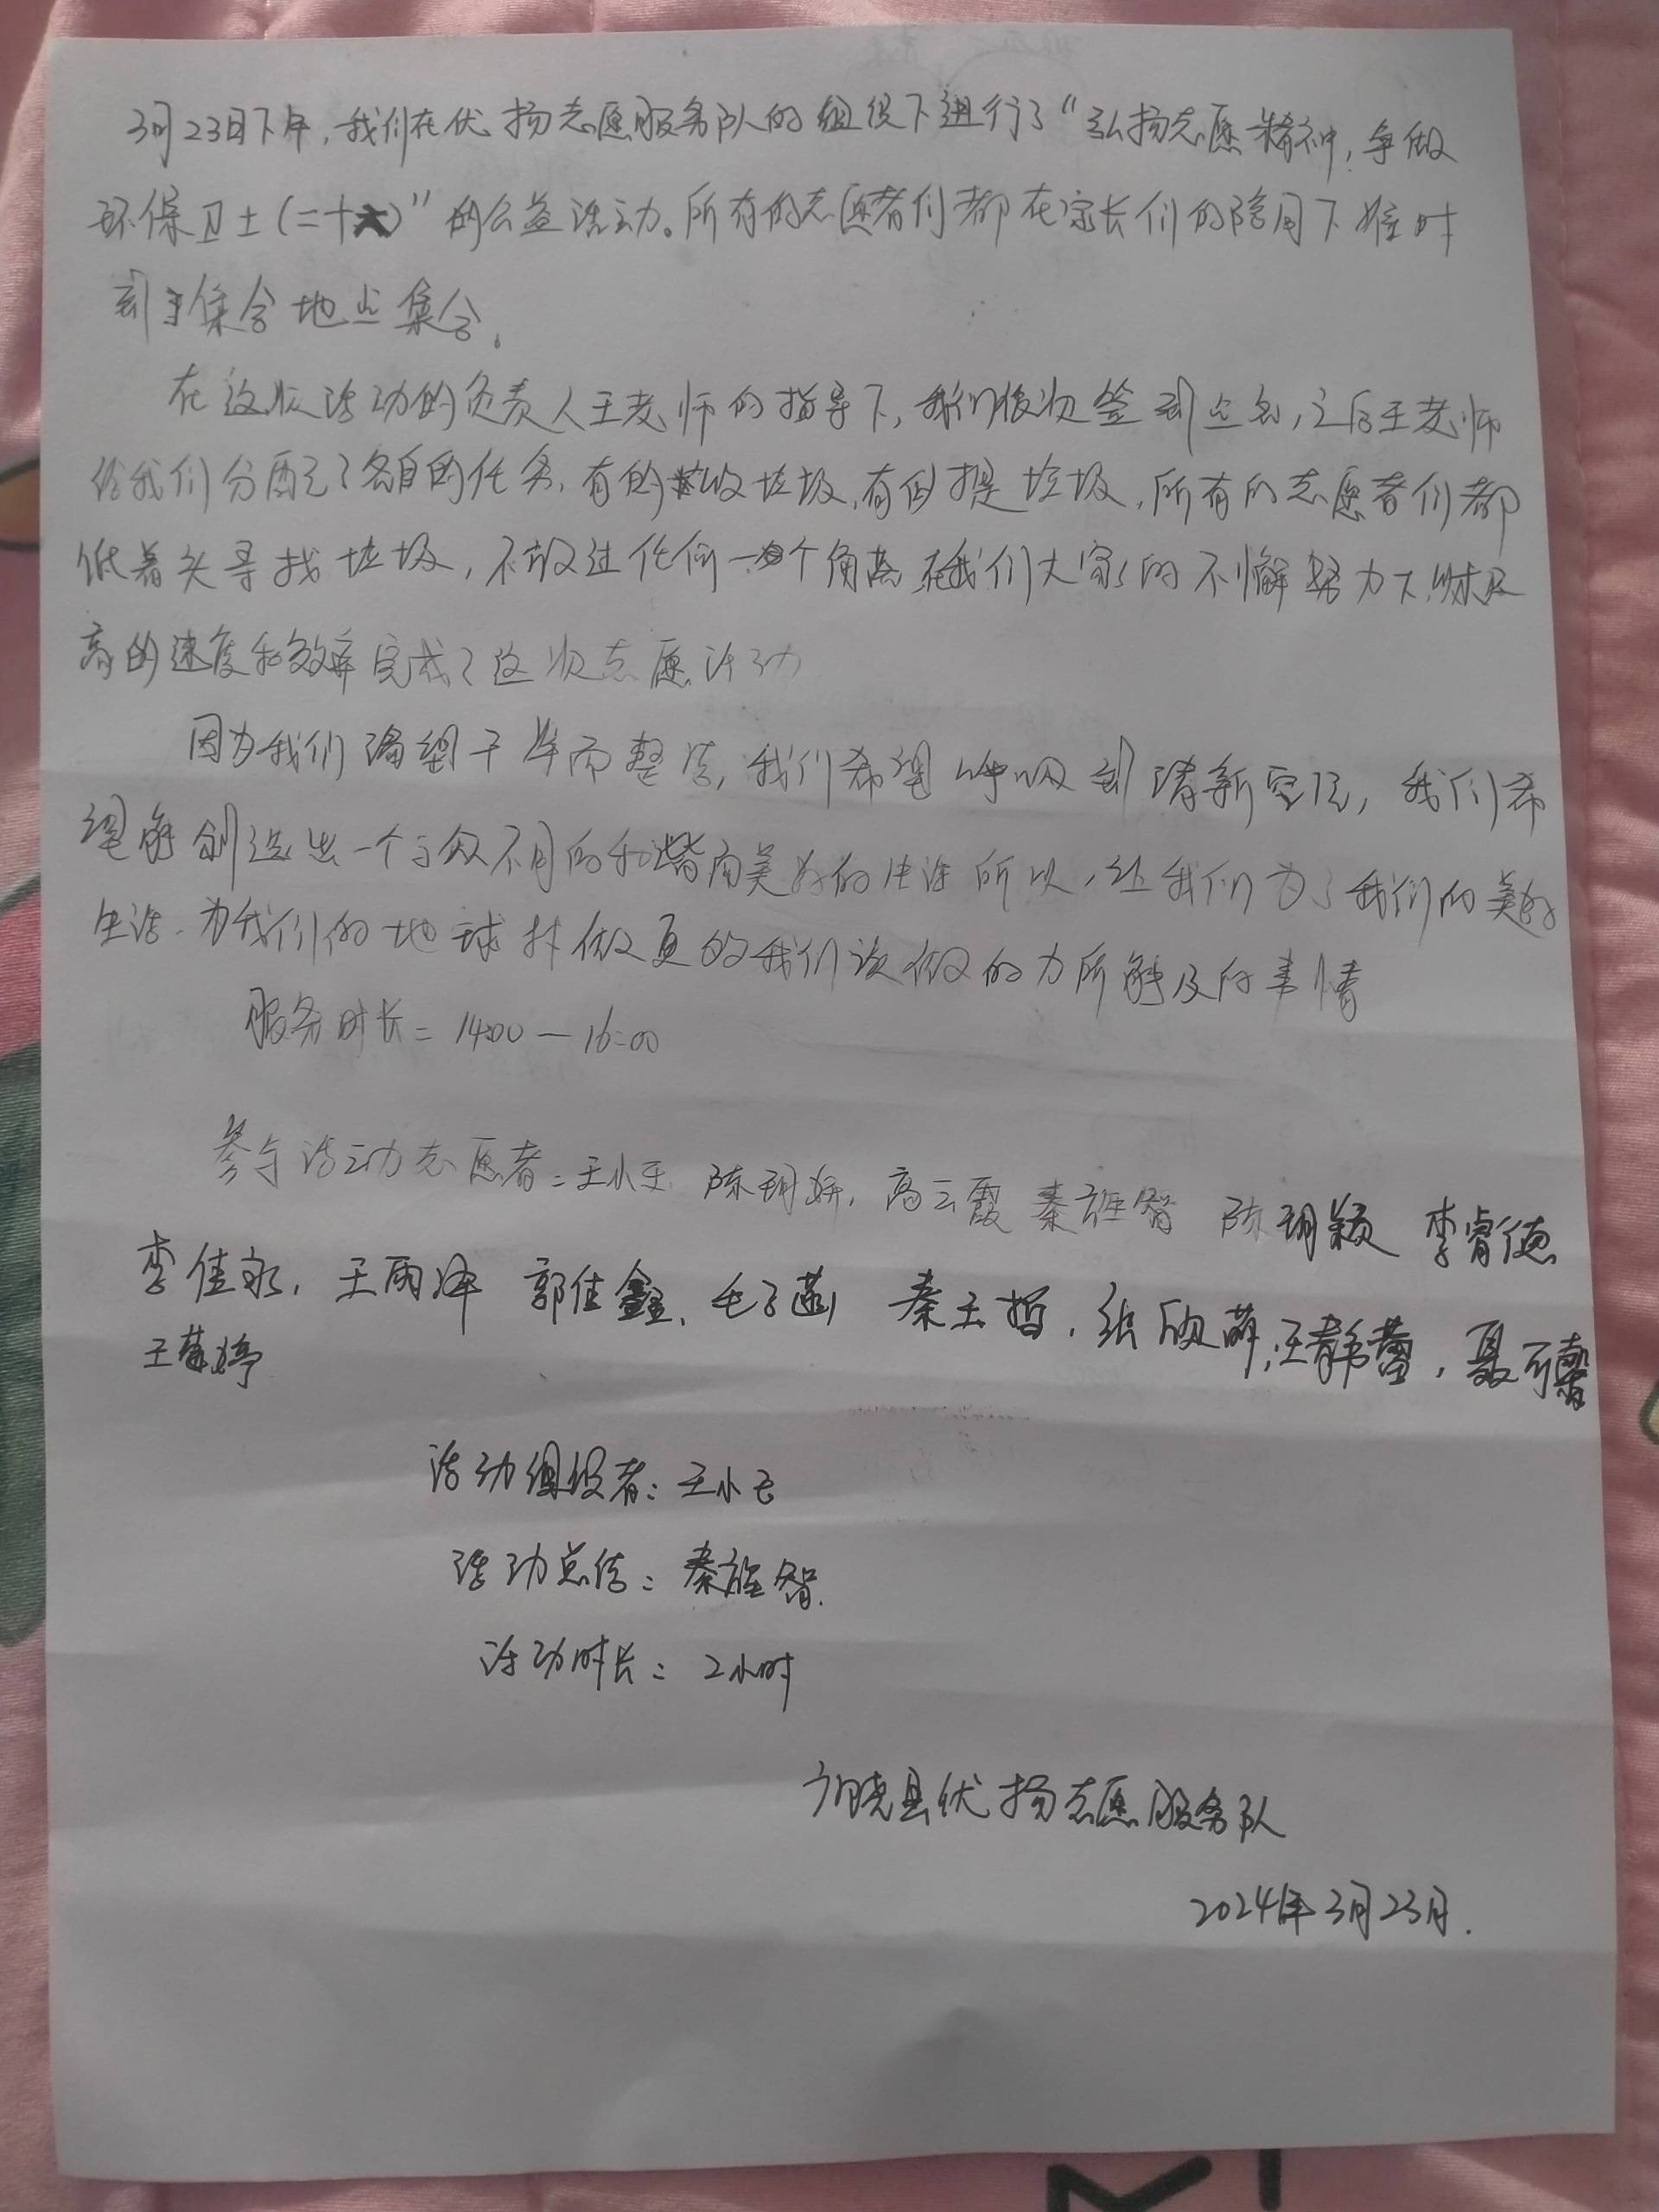 3月23日下午，我们在伏扬志愿服务队的组织下进行了“弘扬志愿精神，争做
环保卫士（二十六）”的公益活动。所有的志愿者们都在家长们的陪同下准时
到集合地点集合。
在这次活动的负责人王老师的指导下，我们依次签到点名，之后王老师
给我们分配了各自的任务，有的收垃圾，有的提垃圾，所有的志愿者们都
低着头寻找垃圾，不放过任何一个角落，在我们大家的不懈努力下，以极
高的速度和效率完成了这次志愿活动
因为我们渴望干净而整洁，我们希望呼吸到清新空气，我们希
望能创造出一个与众不同的和谐而美好的生活所以，让我们为了我们的美好
生活，为我们的地球做我们该做的力所能及的事情
服务时长：14:00—16:00
参与活动志愿者：王小飞 陈玥妍，高云霞 秦旌智 陈玥颖 李睿德
李佳永，王雨泽 郭佳鑫，毛子菡 秦玉哲，张欣萌，王静蕾，聂可馨
王婷
活动组织者：王小飞
活动总结：秦旌智
活动时长：2小时
县伏扬志愿服务队
2024年3月23日.